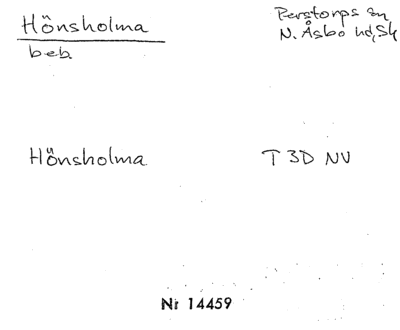 Hönsholma
Perstorps sn
beb.
N. Åsbo hd, Sk
Hönsholma
T 3D NV
Nr 14459